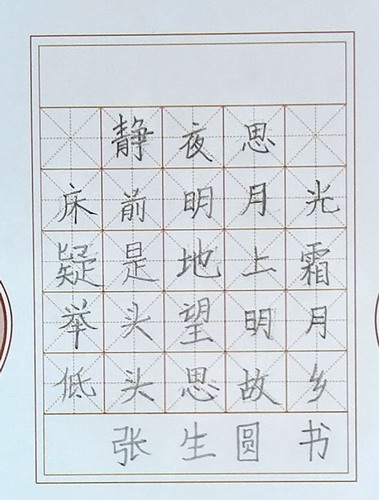 静夜思
床前明月光
疑是地上霜
举头望明月
低头思故乡
张生圆书